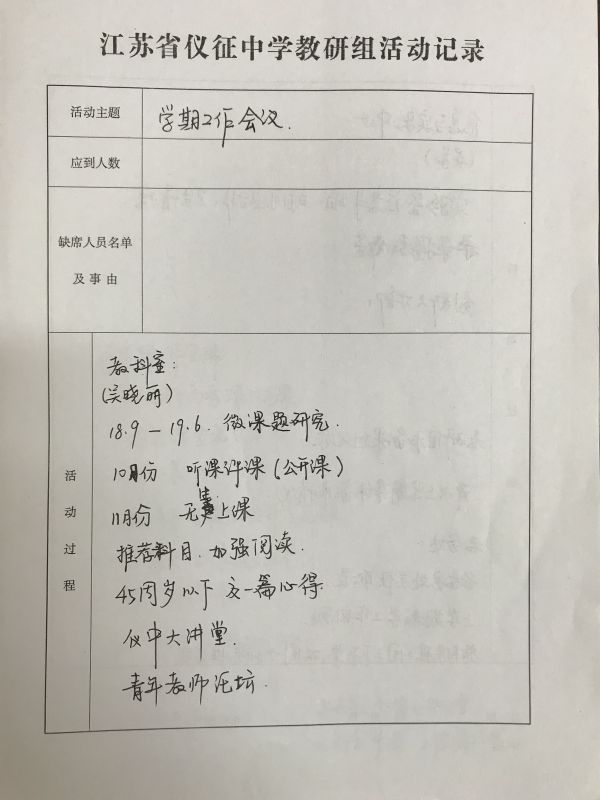 江苏省仪征中学教研组活动记录
活动主题
学期工作会议.
应到人数
缺席人员名单
及事由
活动过程
教科室:
(吴晓丽)
18.9 — 19.6. 微课题研究.
10月份 听课评课(公开课)
11月份 无声上课
推荐科目. 加强阅读.
45周岁以下 交一篇心得.
仪中大讲堂.
青年教师论坛.